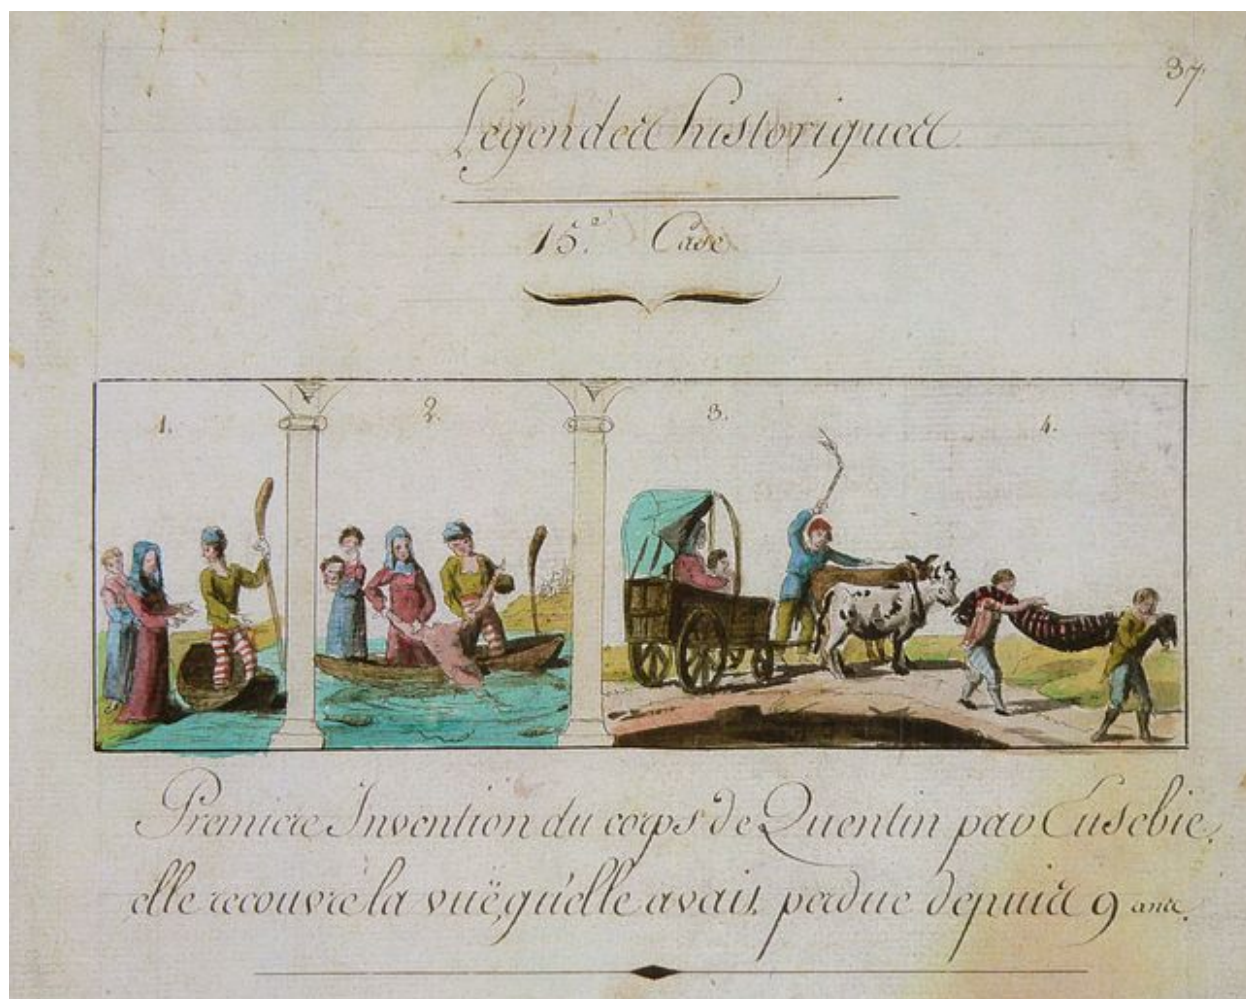 37
Légendes historiques
15.e Case
1.
2.
3.
4.
Premiere Invention du corps de Quentin par Eusebie,
elle recouvre la vuë qu'elle avait perdue depuis 9 ans.